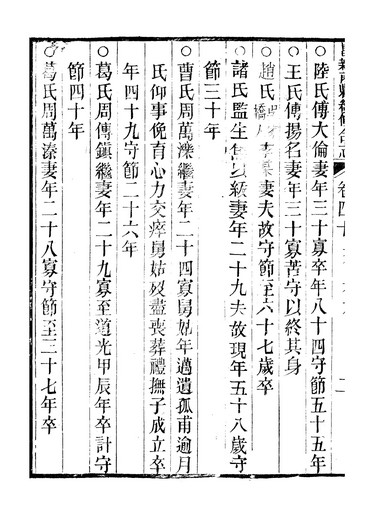 昆新兩縣續修合志 卷四十
○陸氏傅大倫妻年三十寡卒年八十四守節五十五年
○王氏傅揚名妻年三十寡苦守以終其身
○趙氏 妻夫故守節至六十七歲卒
○諸氏監生 妻年二十九夫故現年五十八歲守
節三十年
○曹氏周萬濼繼妻年二十四寡舅姑年邁遺孤甫逾月
氏仰事俛育心力交瘁舅姑歿盡喪葬禮撫子成立卒
年四十九守節二十六年
○葛氏周傅鎮繼妻年二十九寡至道光甲辰年卒計守
節四十年
○葛氏周萬溱妻年二十八寡守節至三十七年卒